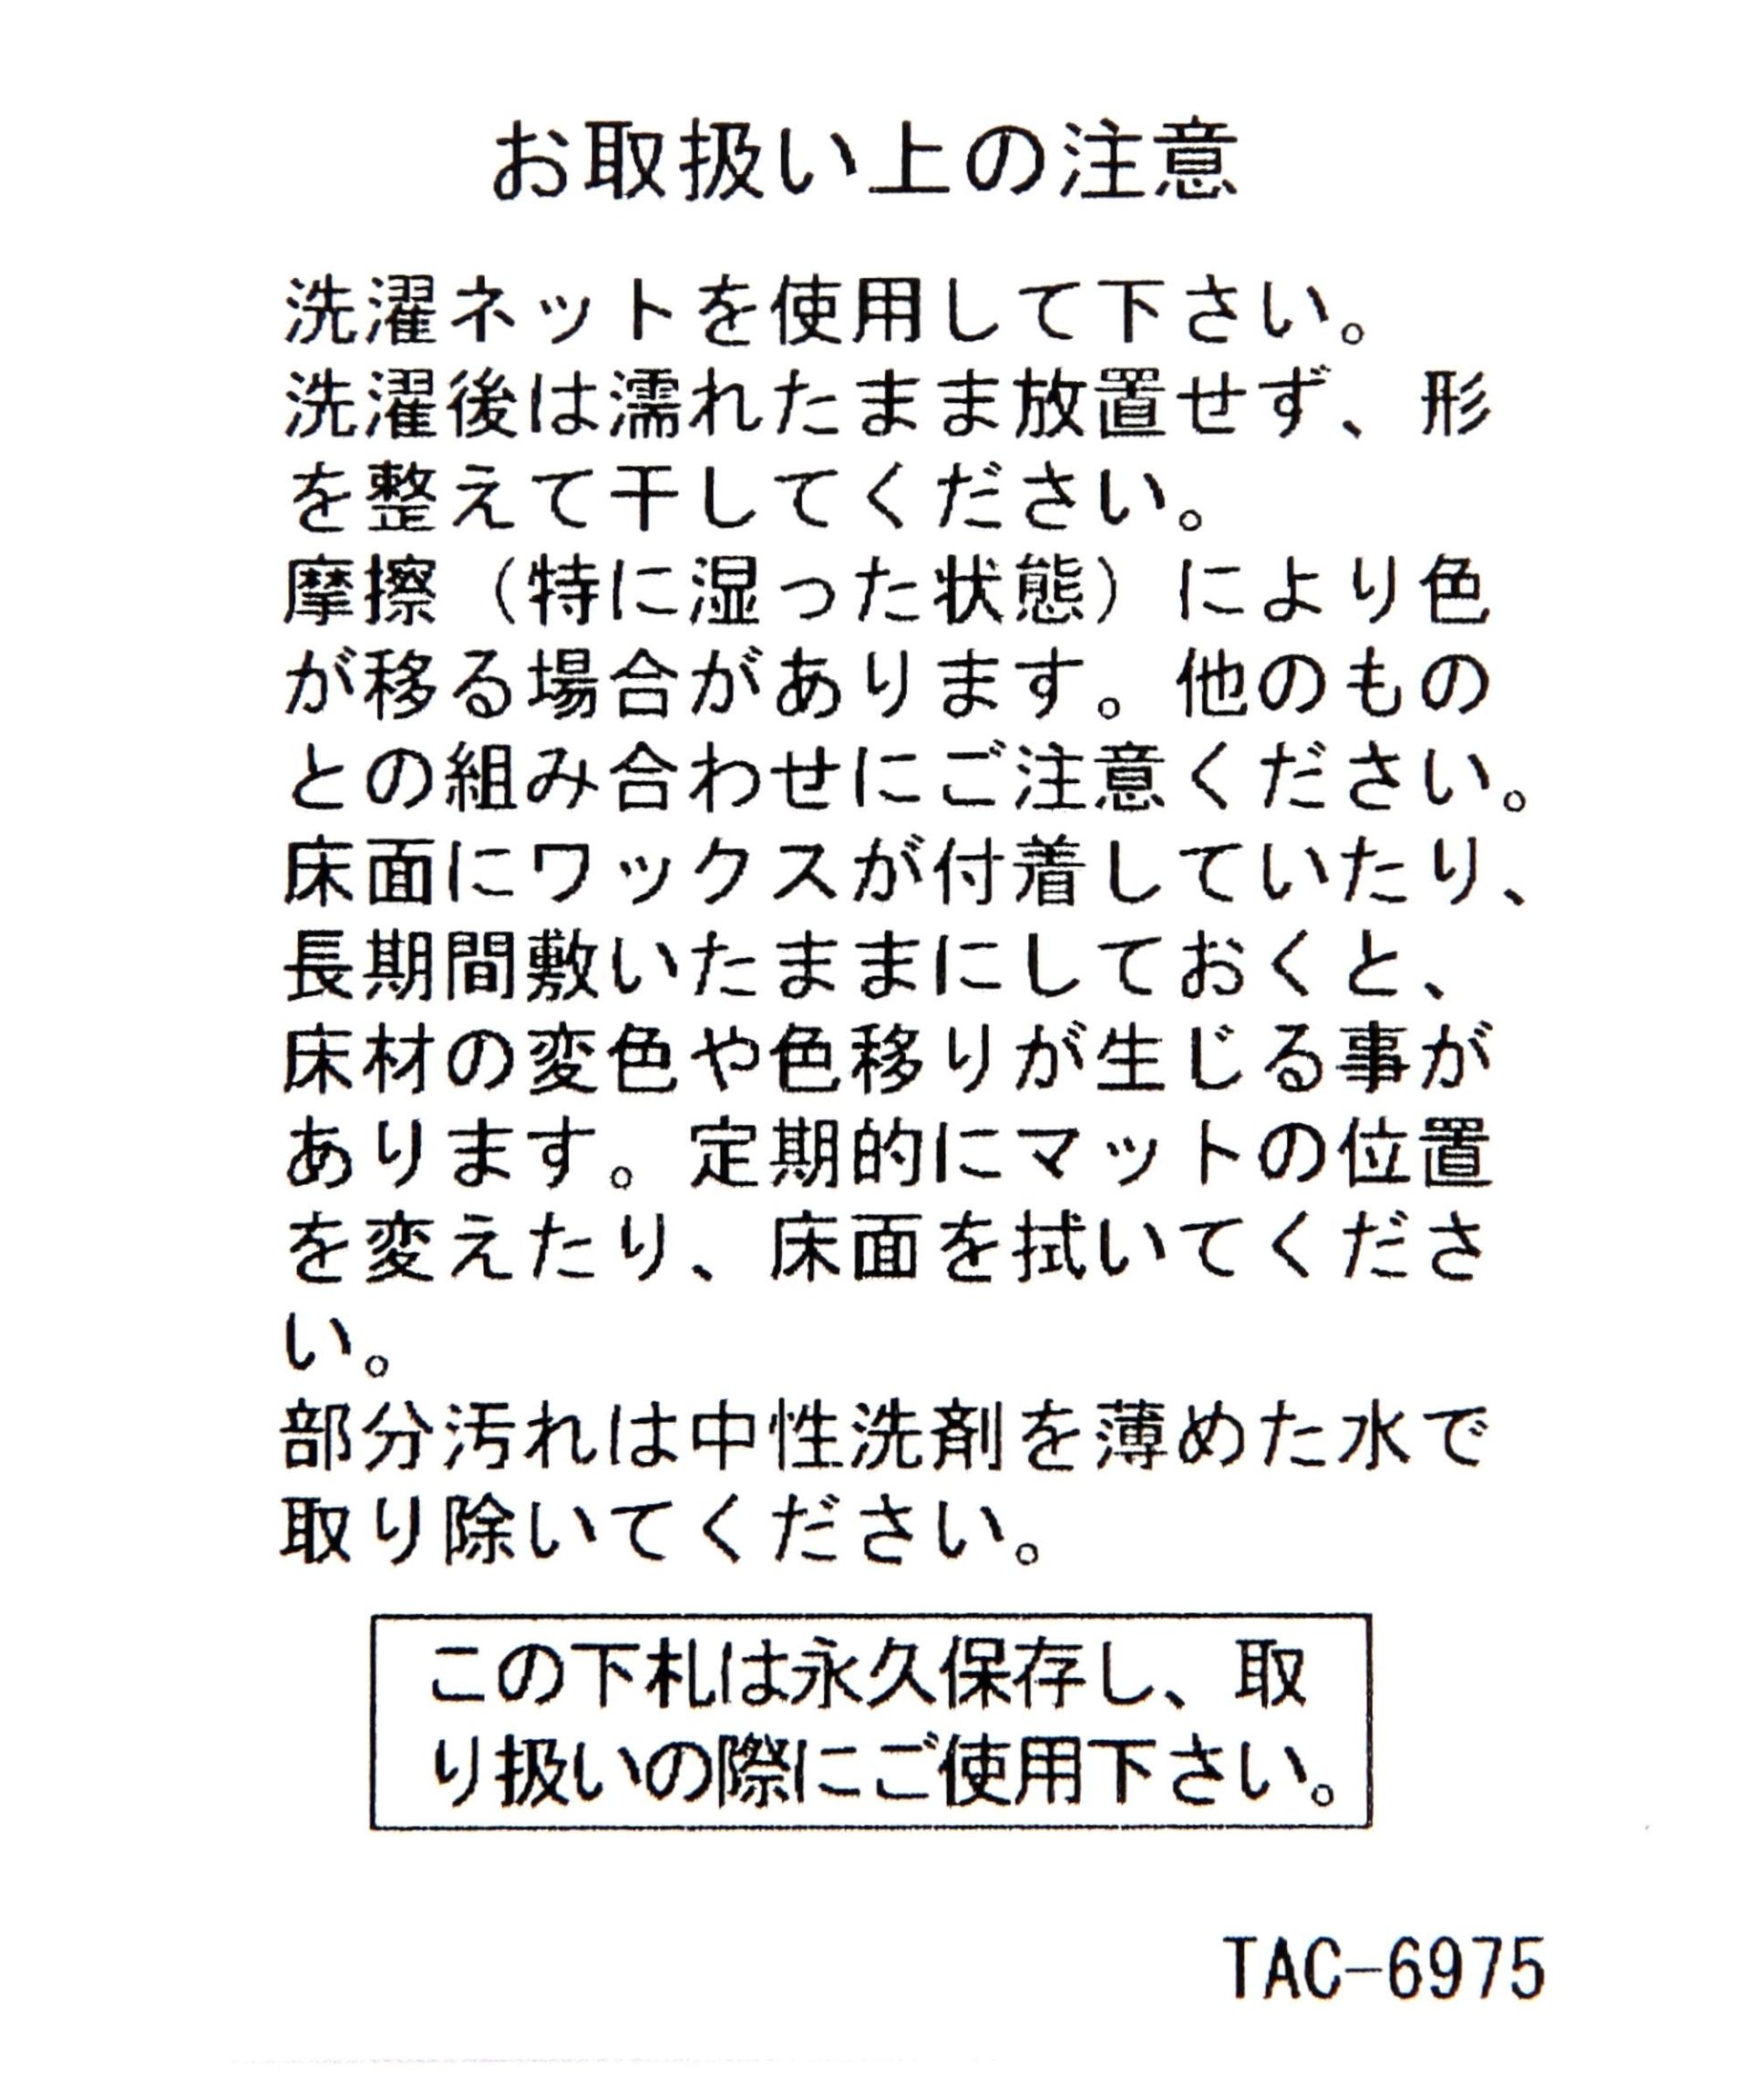 お取扱い上の注意
洗濯ネットを使用して下さい。
洗濯後は濡れたまま放置せず、形
を整えて干してください。
摩擦（特に湿った状態）により色
が移る場合があります。他のもの
との組み合わせにご注意ください。
床面にワックスが付着していたり、
長期間敷いたままにしておくと、
床材の変色や色移りが生じる事が
あります。定期的にマットの位置
を変えたり、床面を拭いてくださ
い。
部分汚れは中性洗剤を薄めた水で
取り除いてください。
この下札は永久保存し、取
り扱いの際にご使用下さい。
TAC-6975